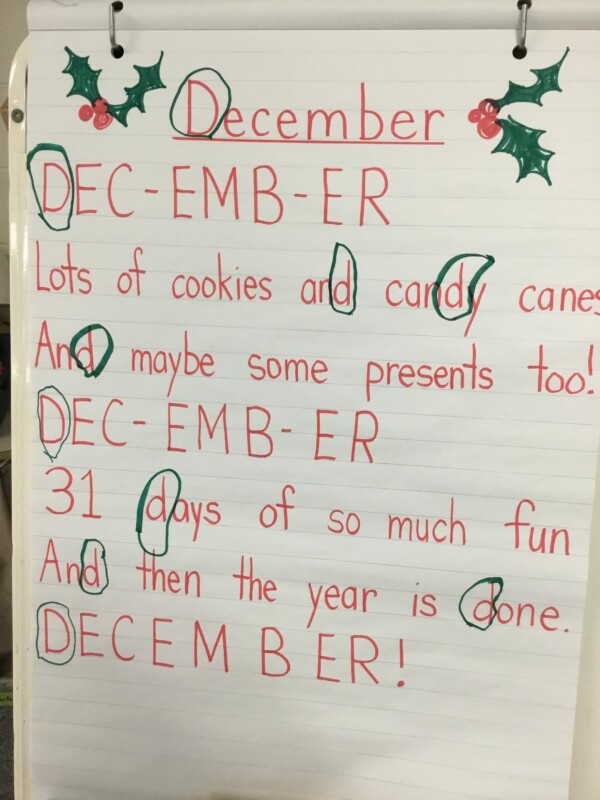 December
DEC-EMB-ER
Lots of cookies and candy canes
And maybe some presents too!
DEC-EMB-ER
31 days of so much fun
And then the year is done.
DECEMBER!